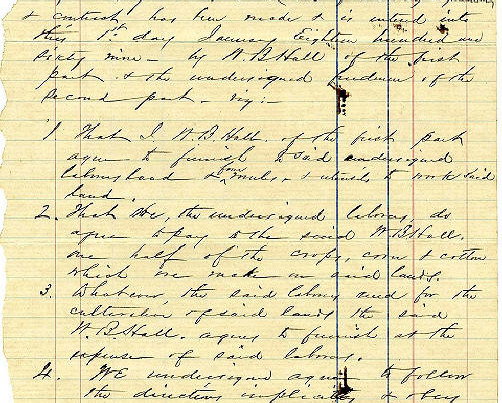 & contract has been made & is intend into
this 1st day January Eighteen hundred and
sixty nine - by W. B. Hall of the first
part & the undersigned freedmen of the
second part - viz:-
1. That I W. B. Hall. of the first part
agree to furnish said undersigned
four mules, & utensils to work said
land.
2. That We, the undersigned laborers, do
agree to pay to the said W. B. Hall.
one half of the crops, corn & cotton
which we make on said lands.
3. Whatever, the said laborers need for the
cultivation of said lands the said
W. B. Hall. agrees to furnish at the
expense of said laborers.
4. We undersigned agree to follow
the directions implicitly & obey